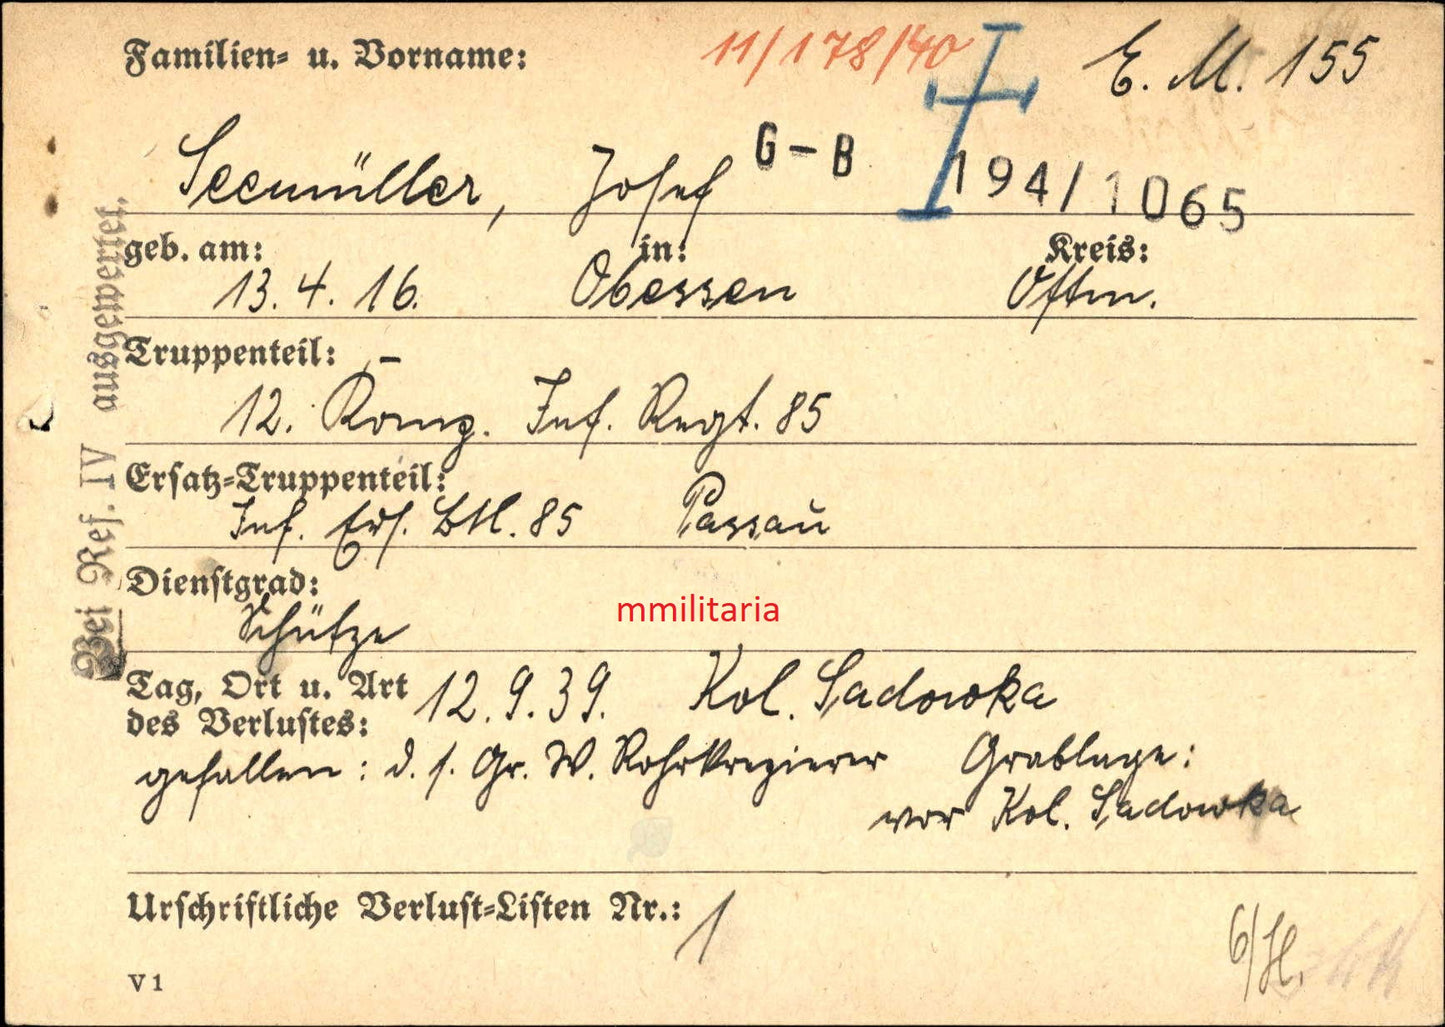 Familien- u. Vorname:
11/178/40
E. M. 155
Seemüller, Josef
G-B
194/1065
geb. am:
in:
Kreis:
13. 4. 16.
Obessen
Truppenteil:
12. Komp. Inf. Regt. 85
Ersatz-Truppenteil:
Inf. Ers. Btl. 85 Passau
Dienstgrad:
Schütze
mmilitaria
Tag, Ort u. Art
des Verlustes:
12. 9. 39. Kol. Sadowka
gefallen: d. s. Gr. W. Rohrkrepierer Grablage:
vor Kol. Sadowka
Urschriftliche Verlust-Listen Nr.: 1
V 1
Bei Ref. IV ausgewertet.